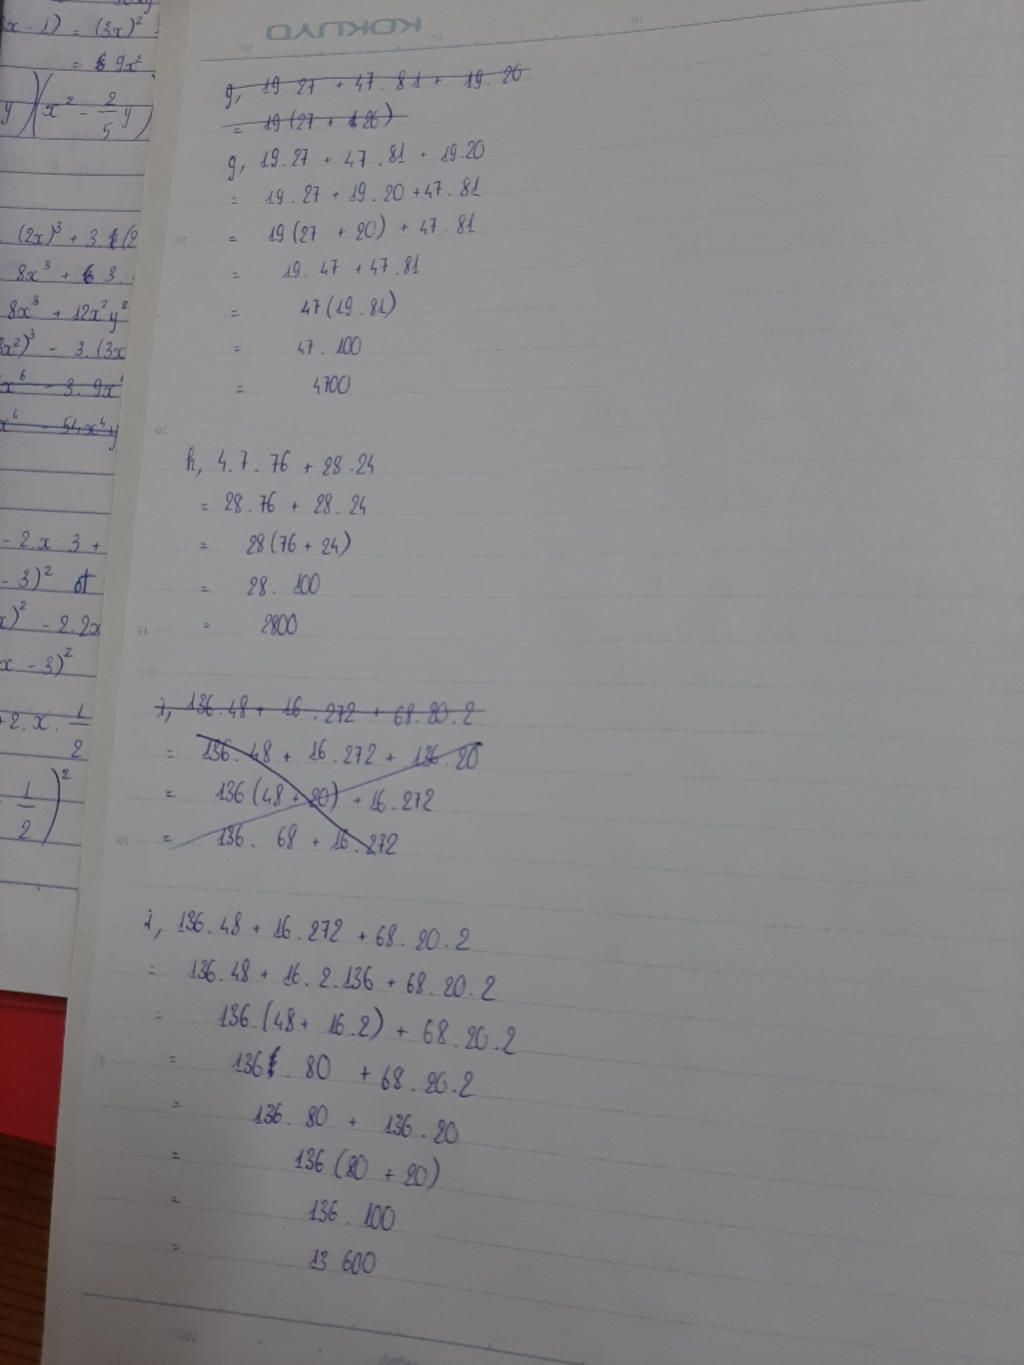 x - 1) = (3x)²
= 9x²
y)(x² - 2/5 y)
(2x)³ + 3.(2
8x³ + 3.
8x³ + 12x²y²
3x²)³ - 3.(3x
x⁶ - 3.9x⁴
x⁶ - 54x⁴y
- 2.x.3 +
- 3)² đt
x)² - 2.2x
x - 3)²
+2.x.1/2
1/2)²
KOKUYO
g, 19.27 + 47.81 + 19.20
= 19(27 + 26)
g, 19.27 + 47.81 + 19.20
= 19.27 + 19.20 + 47.81
= 19(27 + 20) + 47.81
= 19.47 + 47.81
= 47(19.81)
= 47.100
= 4700
h, 4.7.76 + 28.24
= 28.76 + 28.24
= 28(76 + 24)
= 28.100
= 2800
i, 136.48 + 16.272 + 68.20.2
= 136.48 + 16.272 + 136.20
= 136(48 + 20) + 16.272
= 136.68 + 16.272
i, 136.48 + 16.272 + 68.20.2
= 136.48 + 16.2.136 + 68.20.2
= 136.(48 + 16.2) + 68.20.2
= 136.80 + 68.20.2
= 136.80 + 136.20
= 136(80 + 20)
= 136.100
= 13 600
No